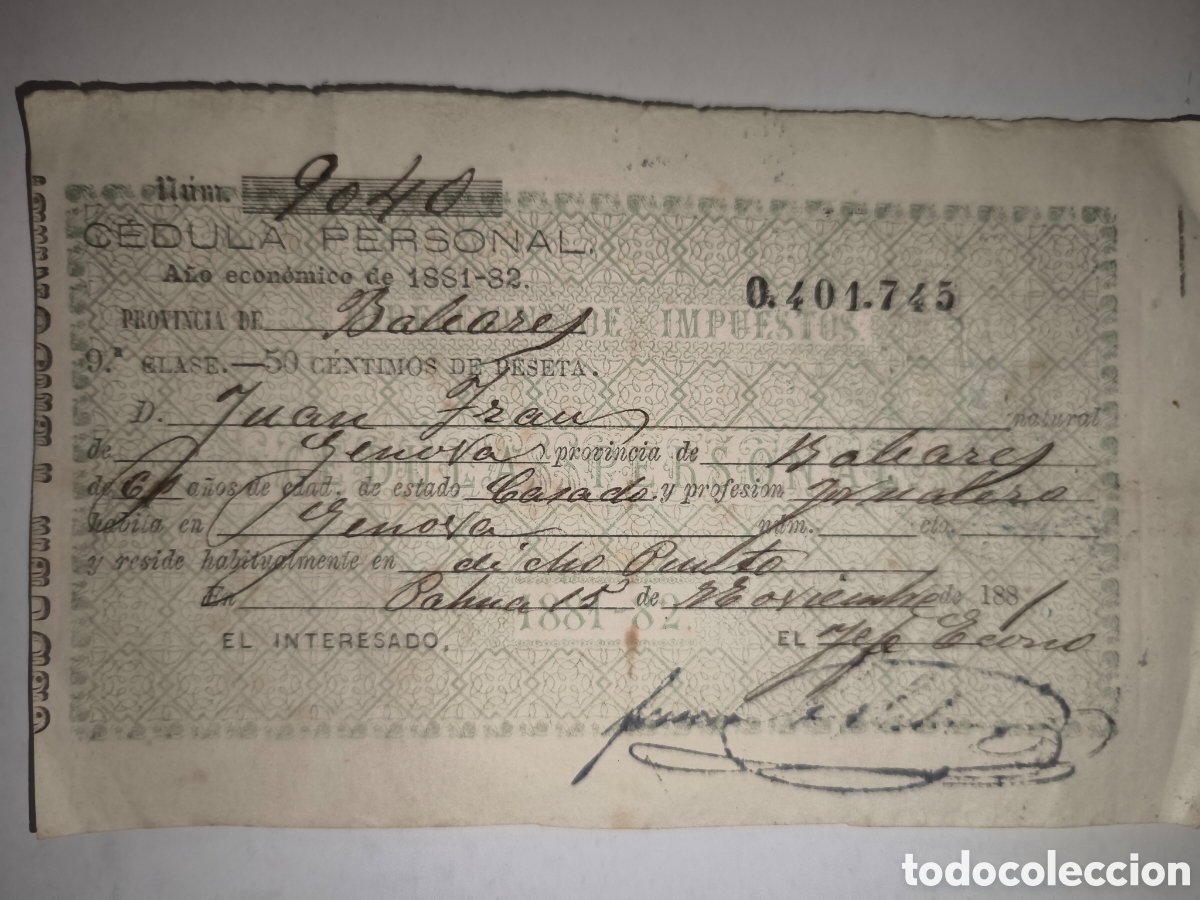 Núm. 9040
CÉDULA PERSONAL.
Año económico de 1881-82.
0.401.745
PROVINCIA DE Baleares
DE IMPUESTOS
9.ª CLASE.—50 CÉNTIMOS DE PESETA.
D. Juan Frau natural
de Genova provincia de Baleares
de años de edad, de estado Casado y profesion Jornalero
habita en Genova núm. cto.
y reside habitualmente en dicho Punto
En Palma 15 de Noviembre de 1881
1881-82
EL INTERESADO, EL Jefe Econo
todocoleccion